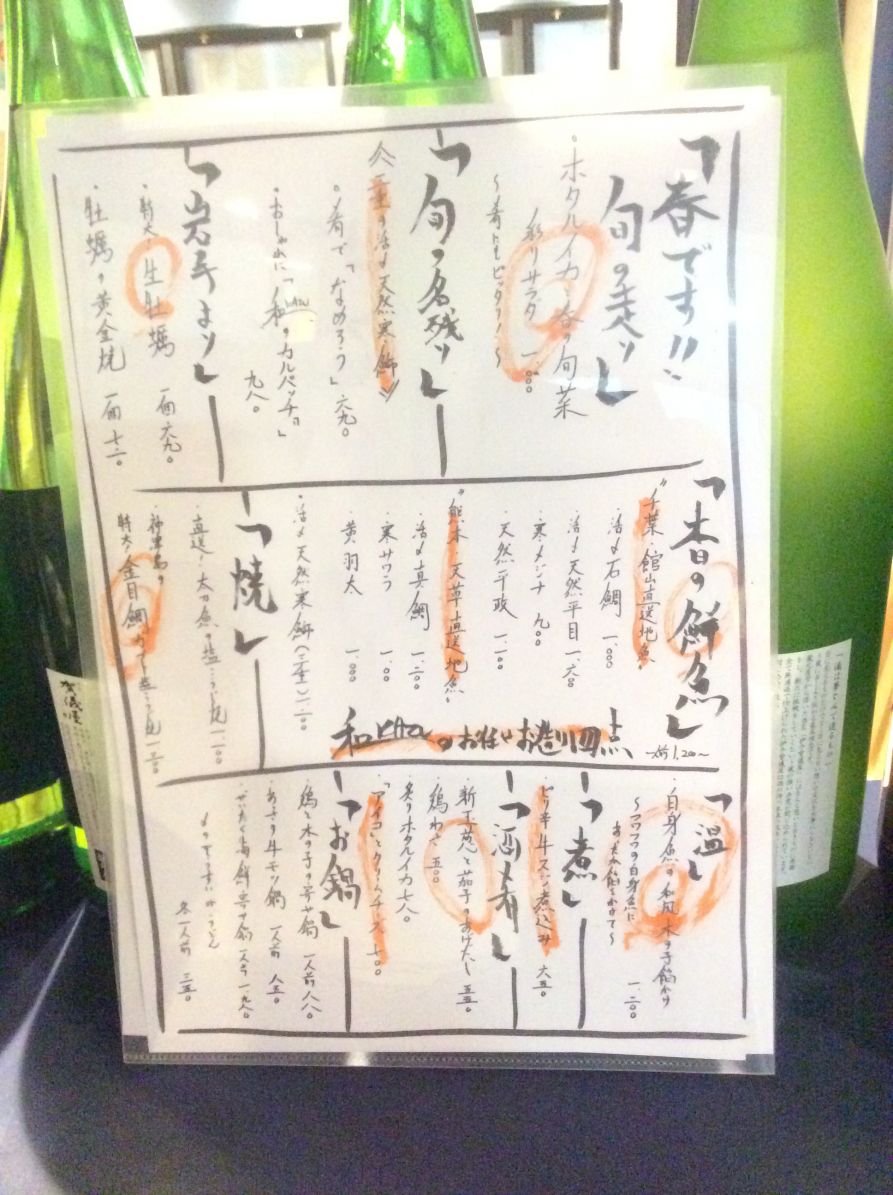 「春です!!
旬の走り」
・ホタルイカと春の旬菜
彩りサラダ 一、〇〇〇
〜肴にもピッタリ!〜
「旬の名残り」
《三重の活〆天然寒鰤》
・肴で「なめろう」 六九〇
・おしゃれに「和KAZUのカルパッチョ」
九八〇
「岩手より」
・特大!生牡蠣 一個 六九〇
・牡蠣の黄金焼 一個 七二〇
「本日の鮮魚」
一、二〇〇〜
"千葉・館山直送地魚"
・活〆石鯛 一、〇〇〇
・活〆天然平目 一、六〇〇
・寒メジナ 九〇〇
・天然平政 一、一〇〇
"熊本・天草直送地魚"
・活〆真鯛 一、二〇〇
・寒サワラ 一、一〇〇
・黄羽太 一、〇〇〇
・活〆天然寒鰤(三重) 一、二〇〇
和KAZUのお任せお造り四点
「焼」
・直送!太刀魚の塩・つけ焼 一、二〇〇
・神津島の
特大!金目鯛
「温」
・白身魚の和風木の子餡かけ
〜フワフワの白身魚に
餡をかけて〜
一、二〇〇
「煮」
・ピリ辛牛スジ煮込み 六五〇
「酒肴」
・新玉葱と茄子のあげだし 五五〇
・鶏わさ 五〇〇
・炙りホタルイカ 七八〇
・アイコとクリームチーズ 七〇〇
「お鍋」
・鶏と木の子の寄せ鍋 一人前 八八〇
・あさり牛モツ鍋 一人前 八五〇
・ぜいたく海鮮寄せ鍋 一人前 一、九八〇
各一人前 三五〇